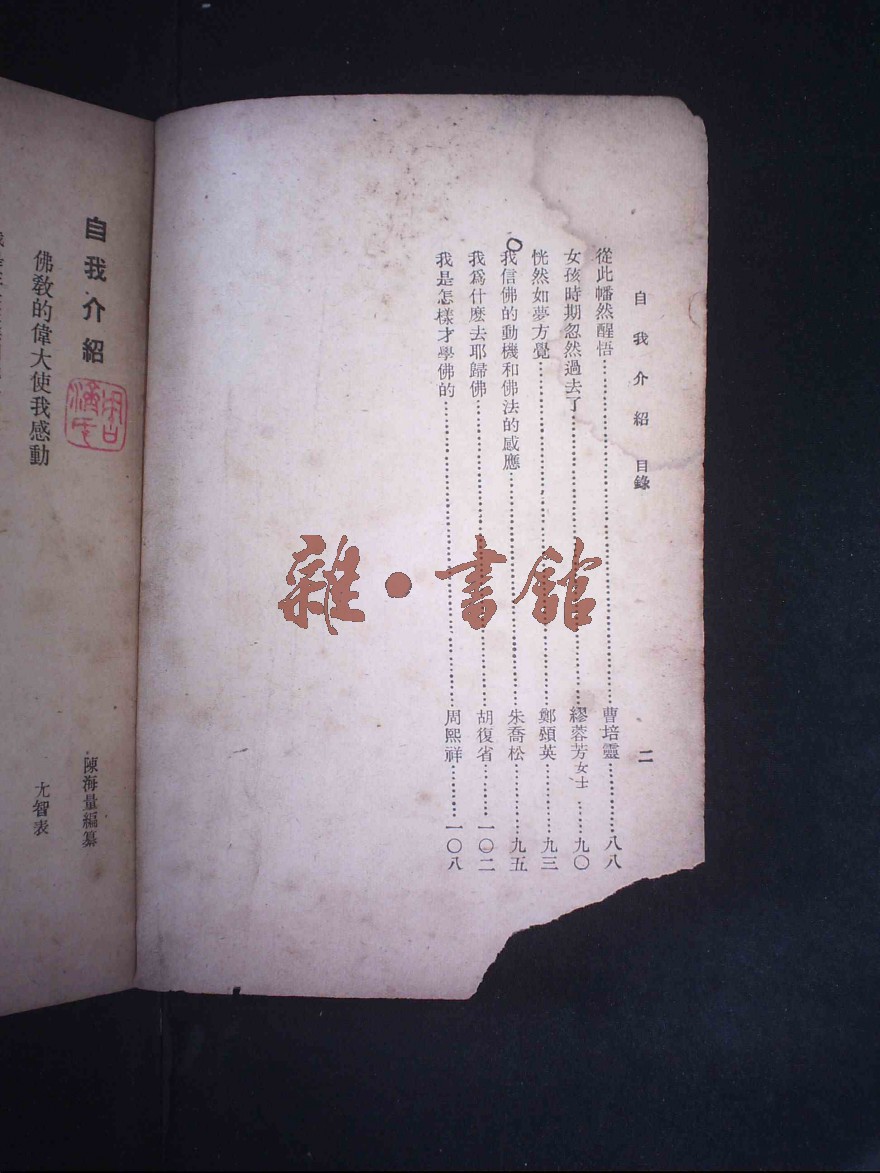 自我介紹 目錄 二
從此幡然醒悟……曹培靈……八八
女孩時期忽然過去了……繆蓉芳女士……九〇
恍然如夢方覺……鄭頸英……九三
我信佛的動機和佛法的感應……朱喬松……九五
我爲什麽去耶歸佛……胡復省……一〇二
我是怎樣才學佛的……周熙祥……一〇八
雜·書館
自我介紹
陳海量編纂
佛教的偉大使我感動
尤智表